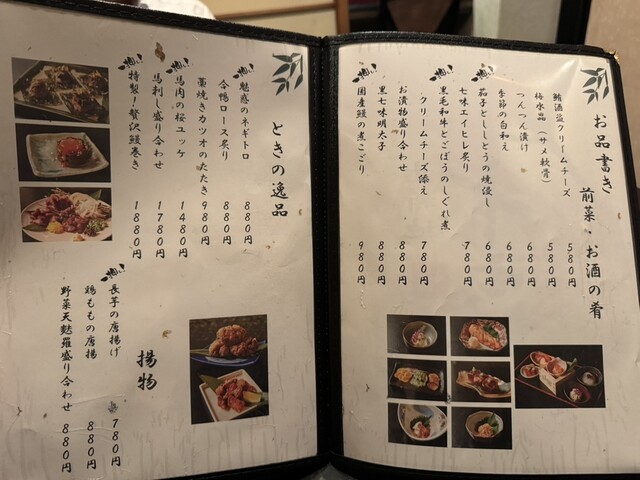 お品書き
前菜・お酒の肴
鮪酒盗クリームチーズ 580円
梅水晶(サメ軟骨) 580円
つんつん漬け 680円
季節の白和え 680円
茄子とししとうの焼浸し 680円
七味エイヒレ炙り 780円
黒毛和牛とごぼうのしぐれ煮
クリームチーズ添え 780円
お漬物盛り合わせ 880円
黒七味明太子 880円
国産鰻の煮こごり 980円
ときの逸品
魅惑のネギトロ 880円
合鴨ロース炙り 880円
藁焼きカツオのたたき 980円
馬肉の桜ユッケ 1480円
馬刺し盛り合わせ 1780円
特製!贅沢鰻巻き 1880円
揚物
長芋の唐揚げ 780円
鶏ももの唐揚 880円
野菜天麩羅盛り合わせ 880円